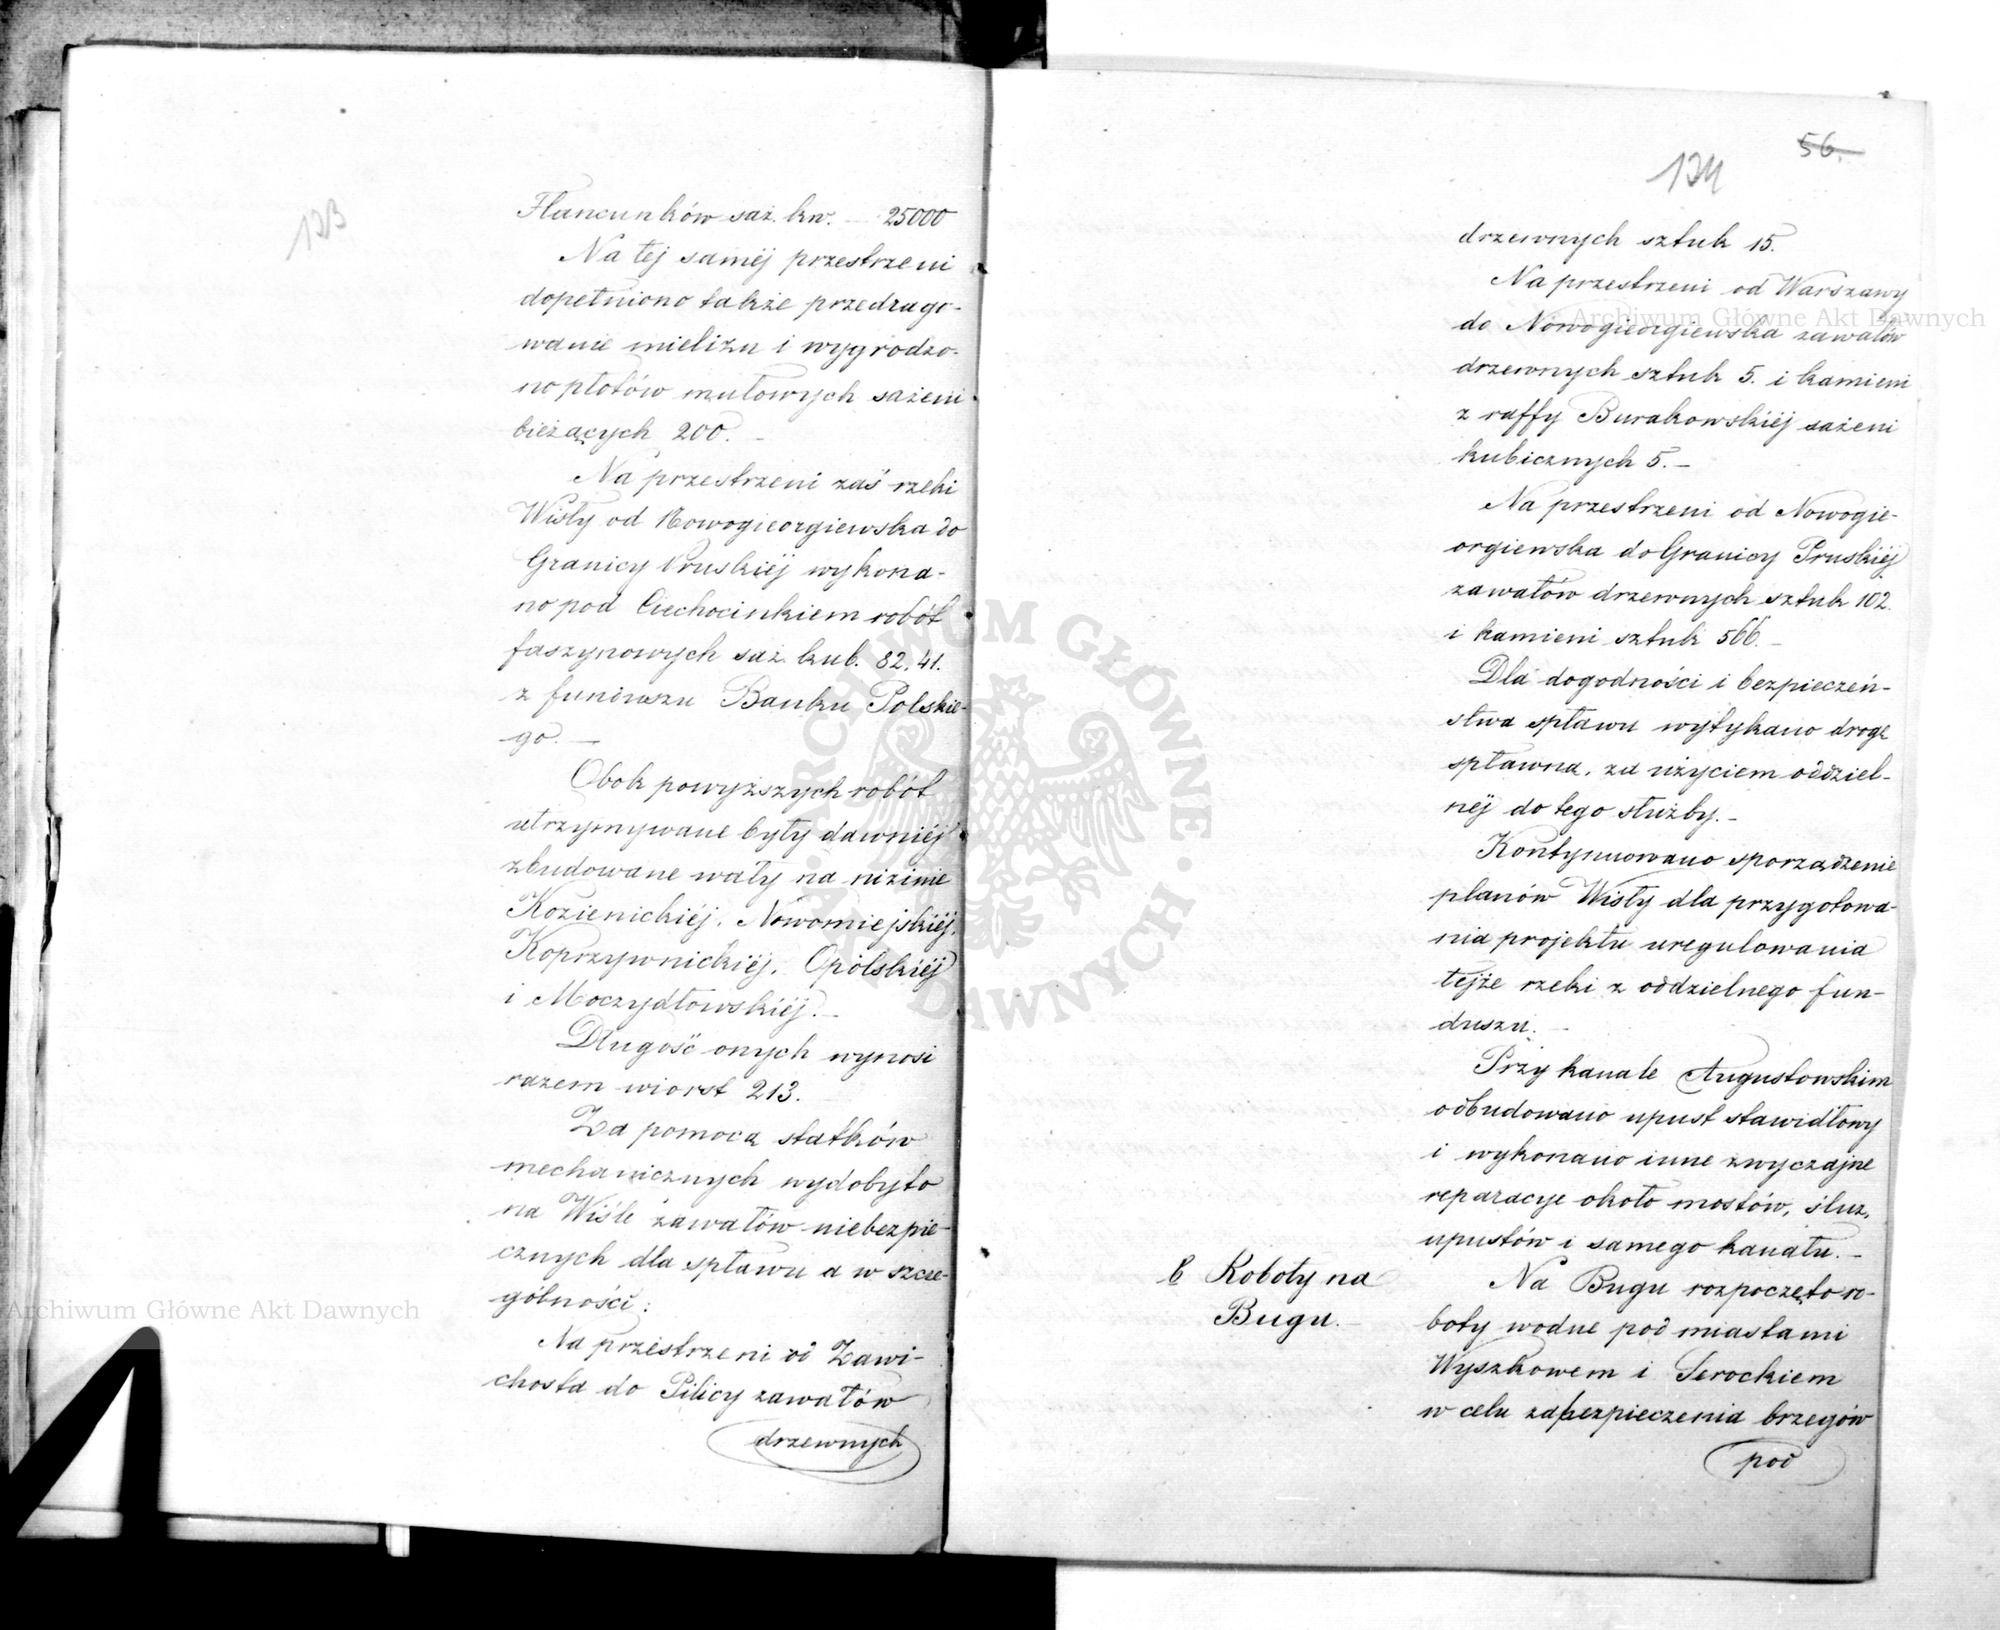 133
Flancunków saż. kw. — 25000
Na tej saméj przestrzeni
dopełniono także przedrago-
wanie mielizn i wygrodzo-
no płotów mułowych sażeni
bieżących 200. —
Na przestrzeni zaś rzeki
Wisły od Nowogieorgiewska do
Granicy Pruskiéj wykona-
no pod Ciechocinkiem robót
faszynowych saż. kub. 82,41.
z funduszu Banku Polskie-
go. —
Obok powyższych robót
utrzymywane były dawniéj
zbudowane wały na nizinie
Kozienickiéj, Nowomiejskiéj,
Koprzywnickiéj, Opolskiéj
i Moczydłowskiéj. —
Długość onych wynosi
razem wiorst 213.
Za pomocą statków
mechanicznych wydobyto
na Wiśle zawałów niebezpie-
cznych dla spławu a w szcze-
gólności:
Na przestrzeni od Zawi-
chosta do Pilicy zawałów
drzewnych
56.
134
drzewnych sztuk 15.
Na przestrzeni od Warszawy
do Nowogieorgiewska zawałów
drzewnych sztuk 5. i kamieni
z raffy Burakowskiéj sażeni
kubicznych 5. —
Na przestrzeni od Nowogie-
orgiewska do Granicy Pruskiéj
zawałów drzewnych sztuk 102.
i kamieni sztuk 566. —
Dla dogodności i bezpieczeń-
stwa spławu wytykano drogę
spławną, za użyciem oddziel-
néj do tego służby. —
Kontynuowano sporządzenie
planów Wisły dla przygotowa-
nia projektu uregulowania
tejże rzeki z oddzielnego fun-
duszu. —
Przy kanale Augustowskim
odbudowano upust stawidłowy
i wykonano inne zwyczajne
reparacye około mostów, śluz,
upustów i samego kanału. —
b Roboty na
Bugu. —
Na Bugu rozpoczęto ro-
boty wodne pod miastami
Wyszkowem i Serockiem
w celu zabezpieczenia brzegów
pod
Archiwum Główne Akt Dawnych
Archiwum Główne Akt Dawnych
ARCHIWUM GŁÓWNE AKT DAWNYCH